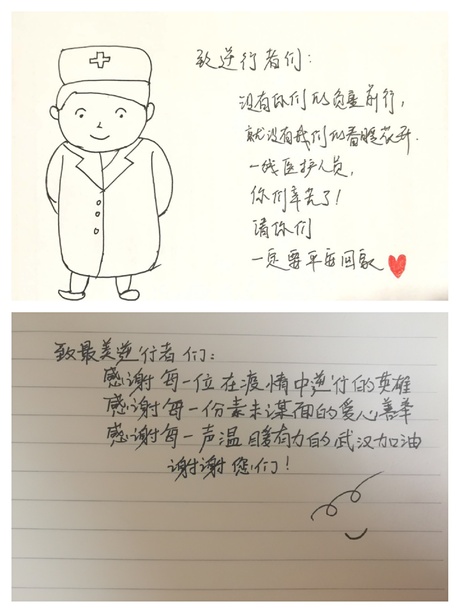 致逆行者们：
没有你们的负重前行，
就没有我们的春暖花开.
一线医护人员，
你们辛苦了！
请你们
一定要平安回家
致最美逆行者们：
感谢每一位在疫情中逆行的英雄
感谢每一份素未谋面的爱心善举
感谢每一声温暖有力的武汉加油
谢谢您们！